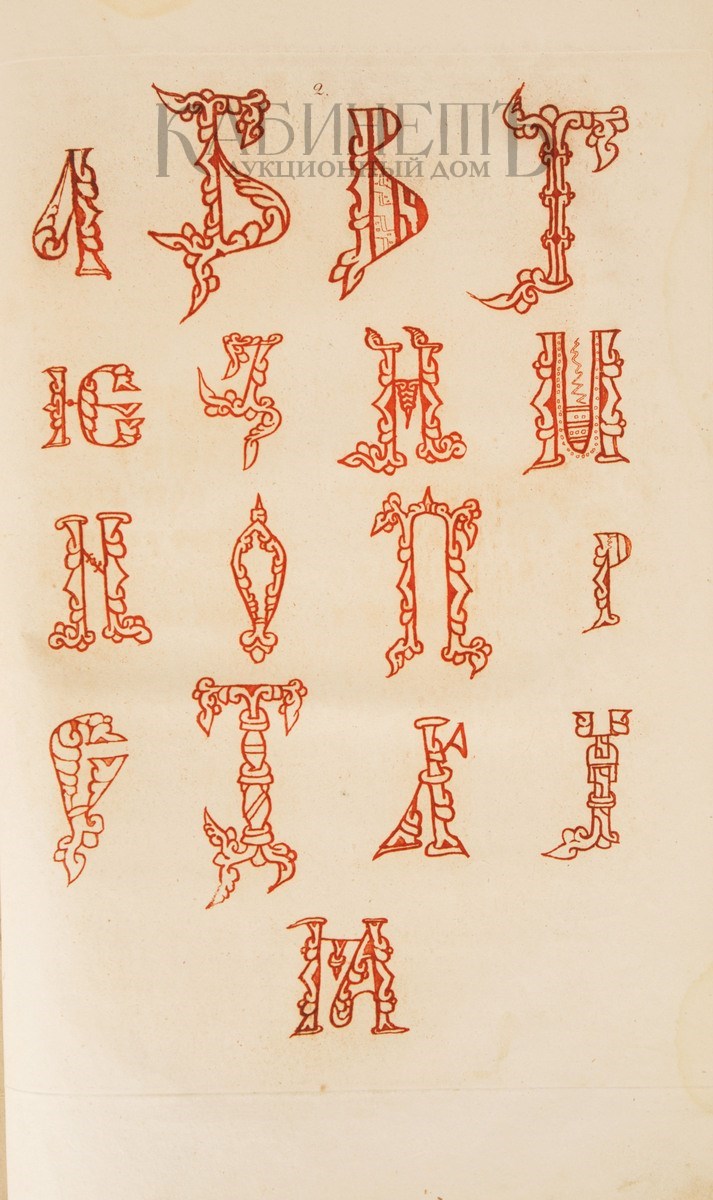 2.
КАБИНЕТЪ
АУКЦИОННЫЙ ДОМ
А Б В Г
Ѥ З И М
Н О П Р
С Т Ч
Ꙗ